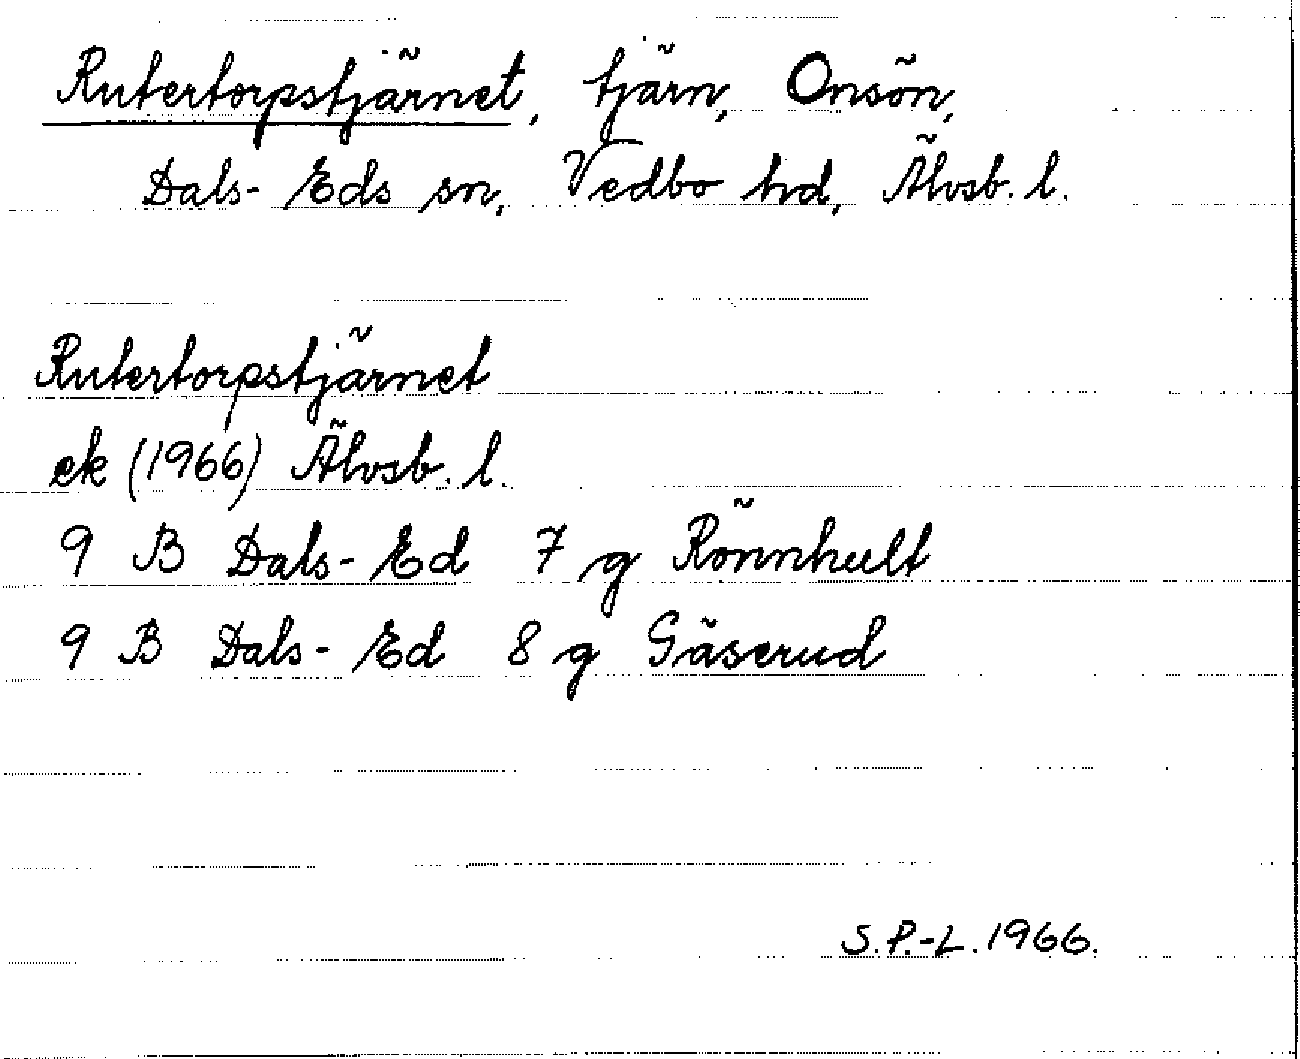 Rutertorpstjärnet, tjärn, Onsön,
Dals-Eds sn, Vedbo hd, Älvsb. l.
Rutertorpstjärnet
ek (1966) Älvsb. l.
9 B Dals-Ed 7 g Rönnhult
9 B Dals-Ed 8 g Gäserud
S.P.-L. 1966.